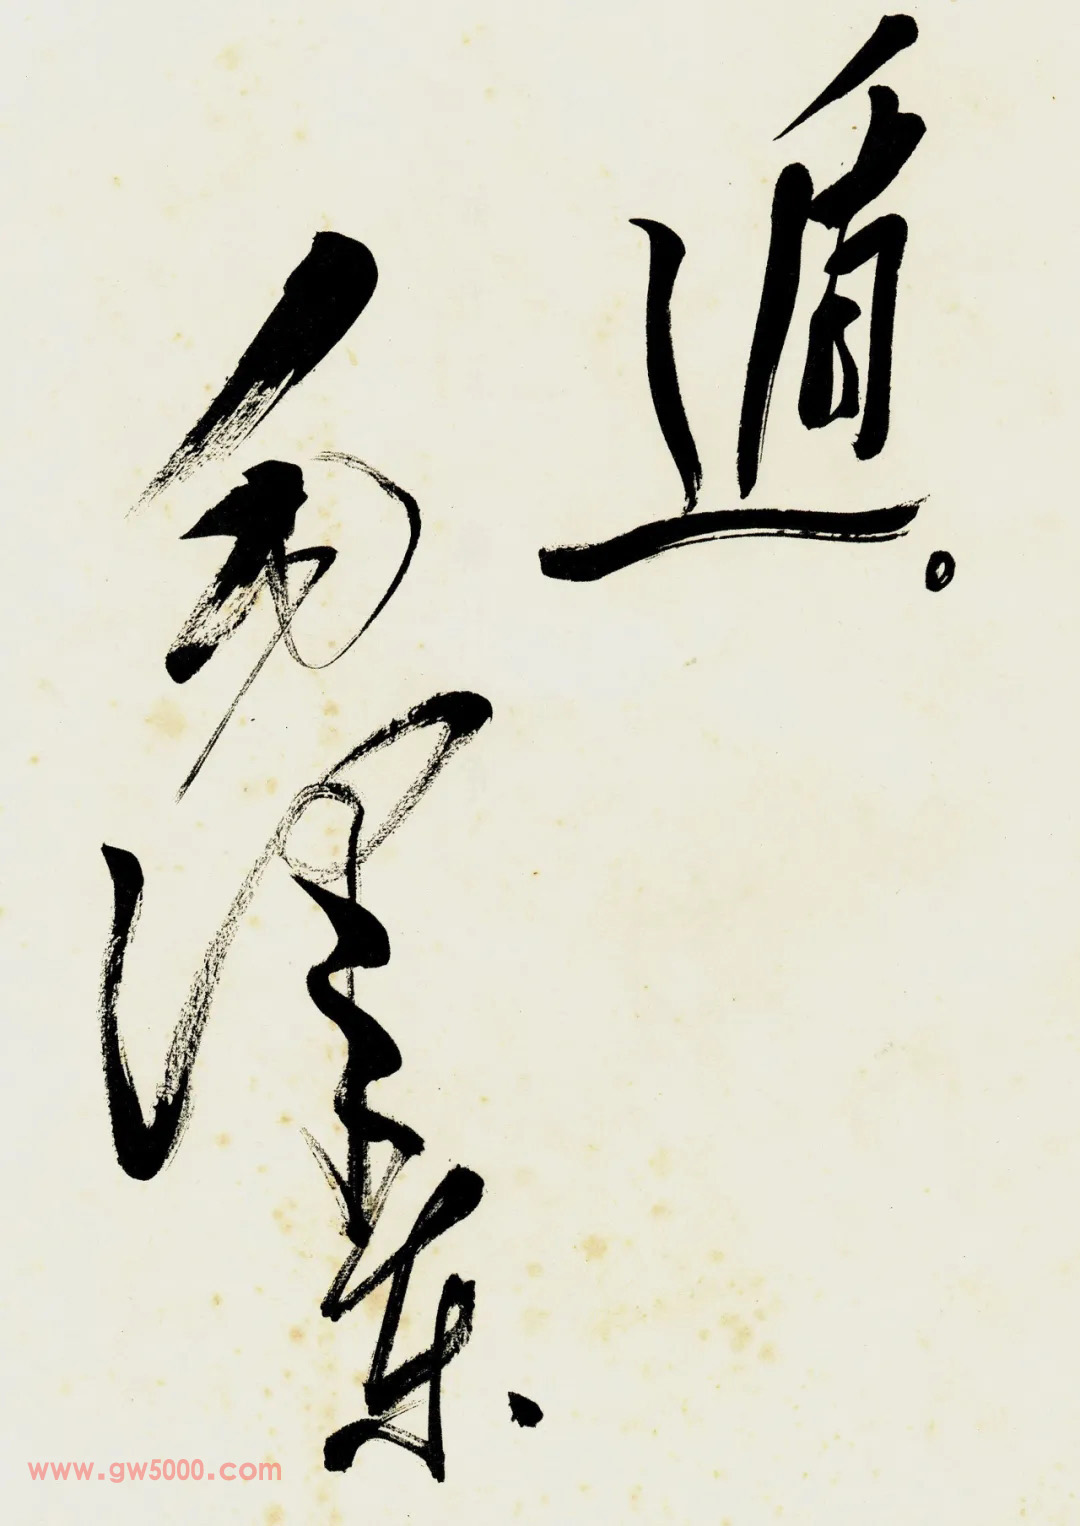 遁。
毛泽东
www.gw5000.com